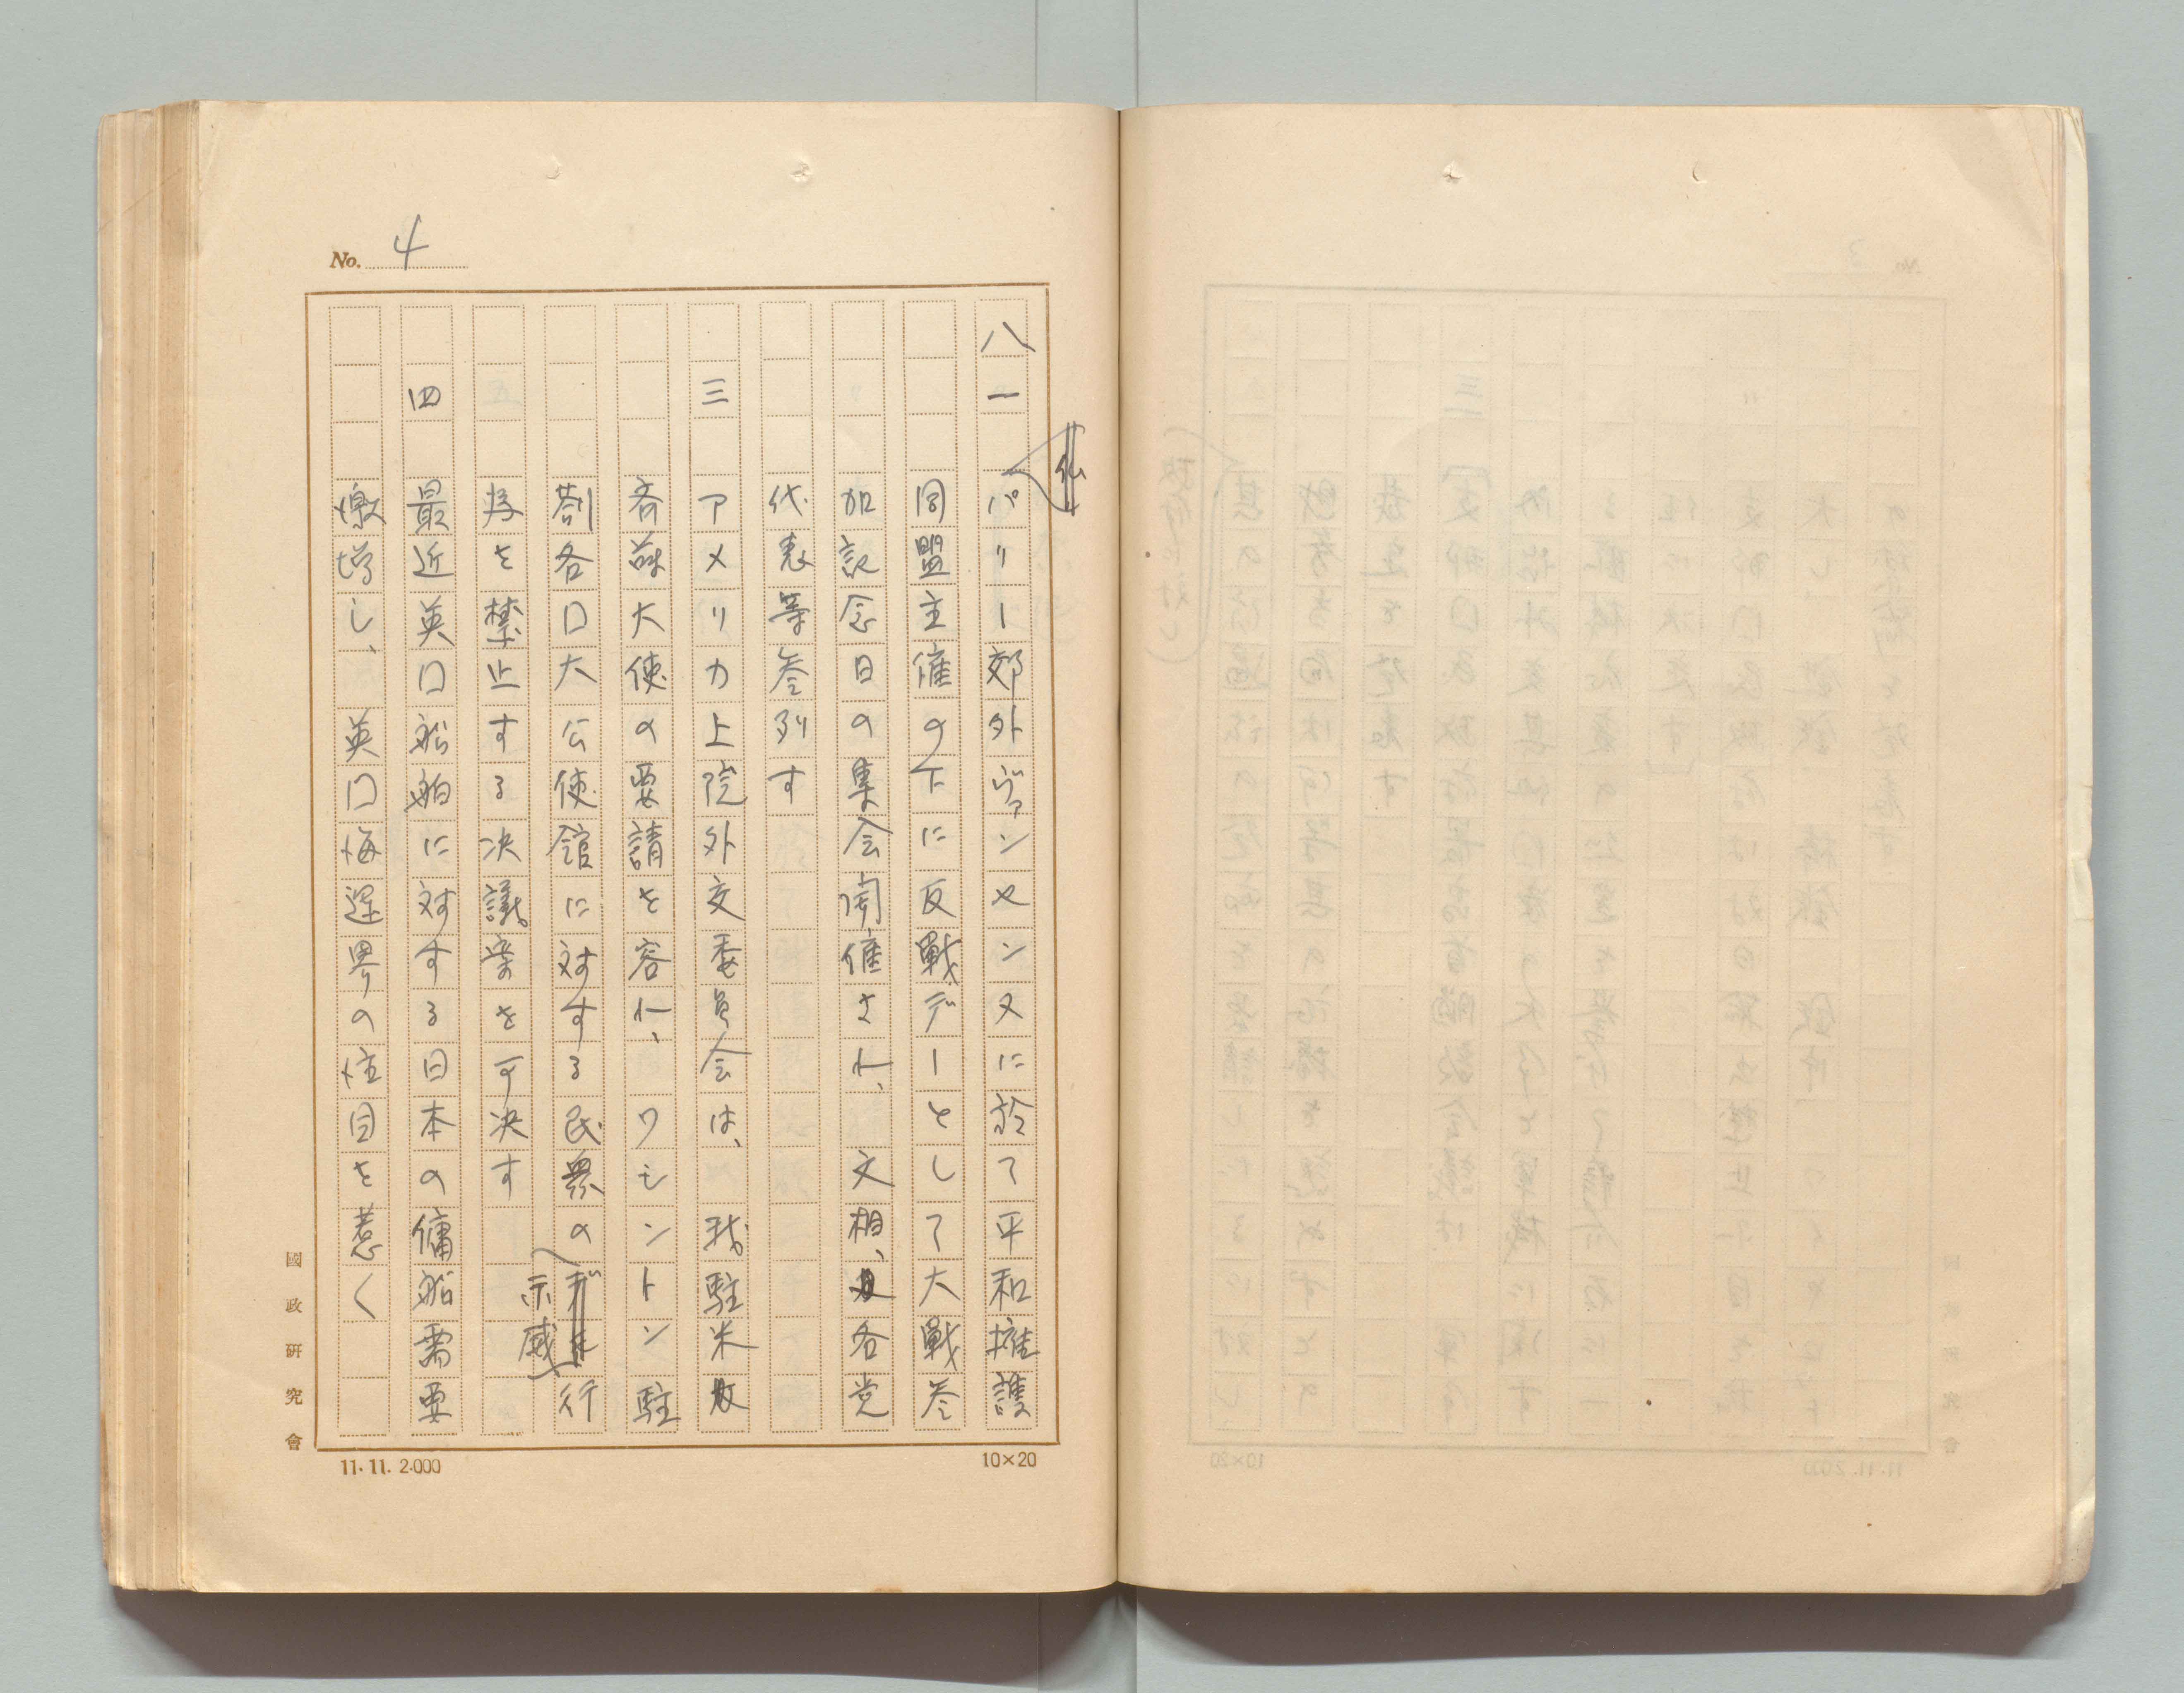 No. 4
八 一 パリー郊外ヴァンセンヌに於て平和擁護
同盟主催の下に反戦デーとして大戦参
加記念日の集会開催され、文相、各党
代表等参列す
三 アメリカ上院外交委員会は、我駐米大
斉藤大使の要請を容れ、ワシントン駐
剳各口大公使館に対する民衆の行
示威
為を禁止する決議案を可決す
四 最近英口船舶に対する日本の傭船需要
激増し、英口海運界の注目を惹く
國政研究會
11.11. 2.000
10×20